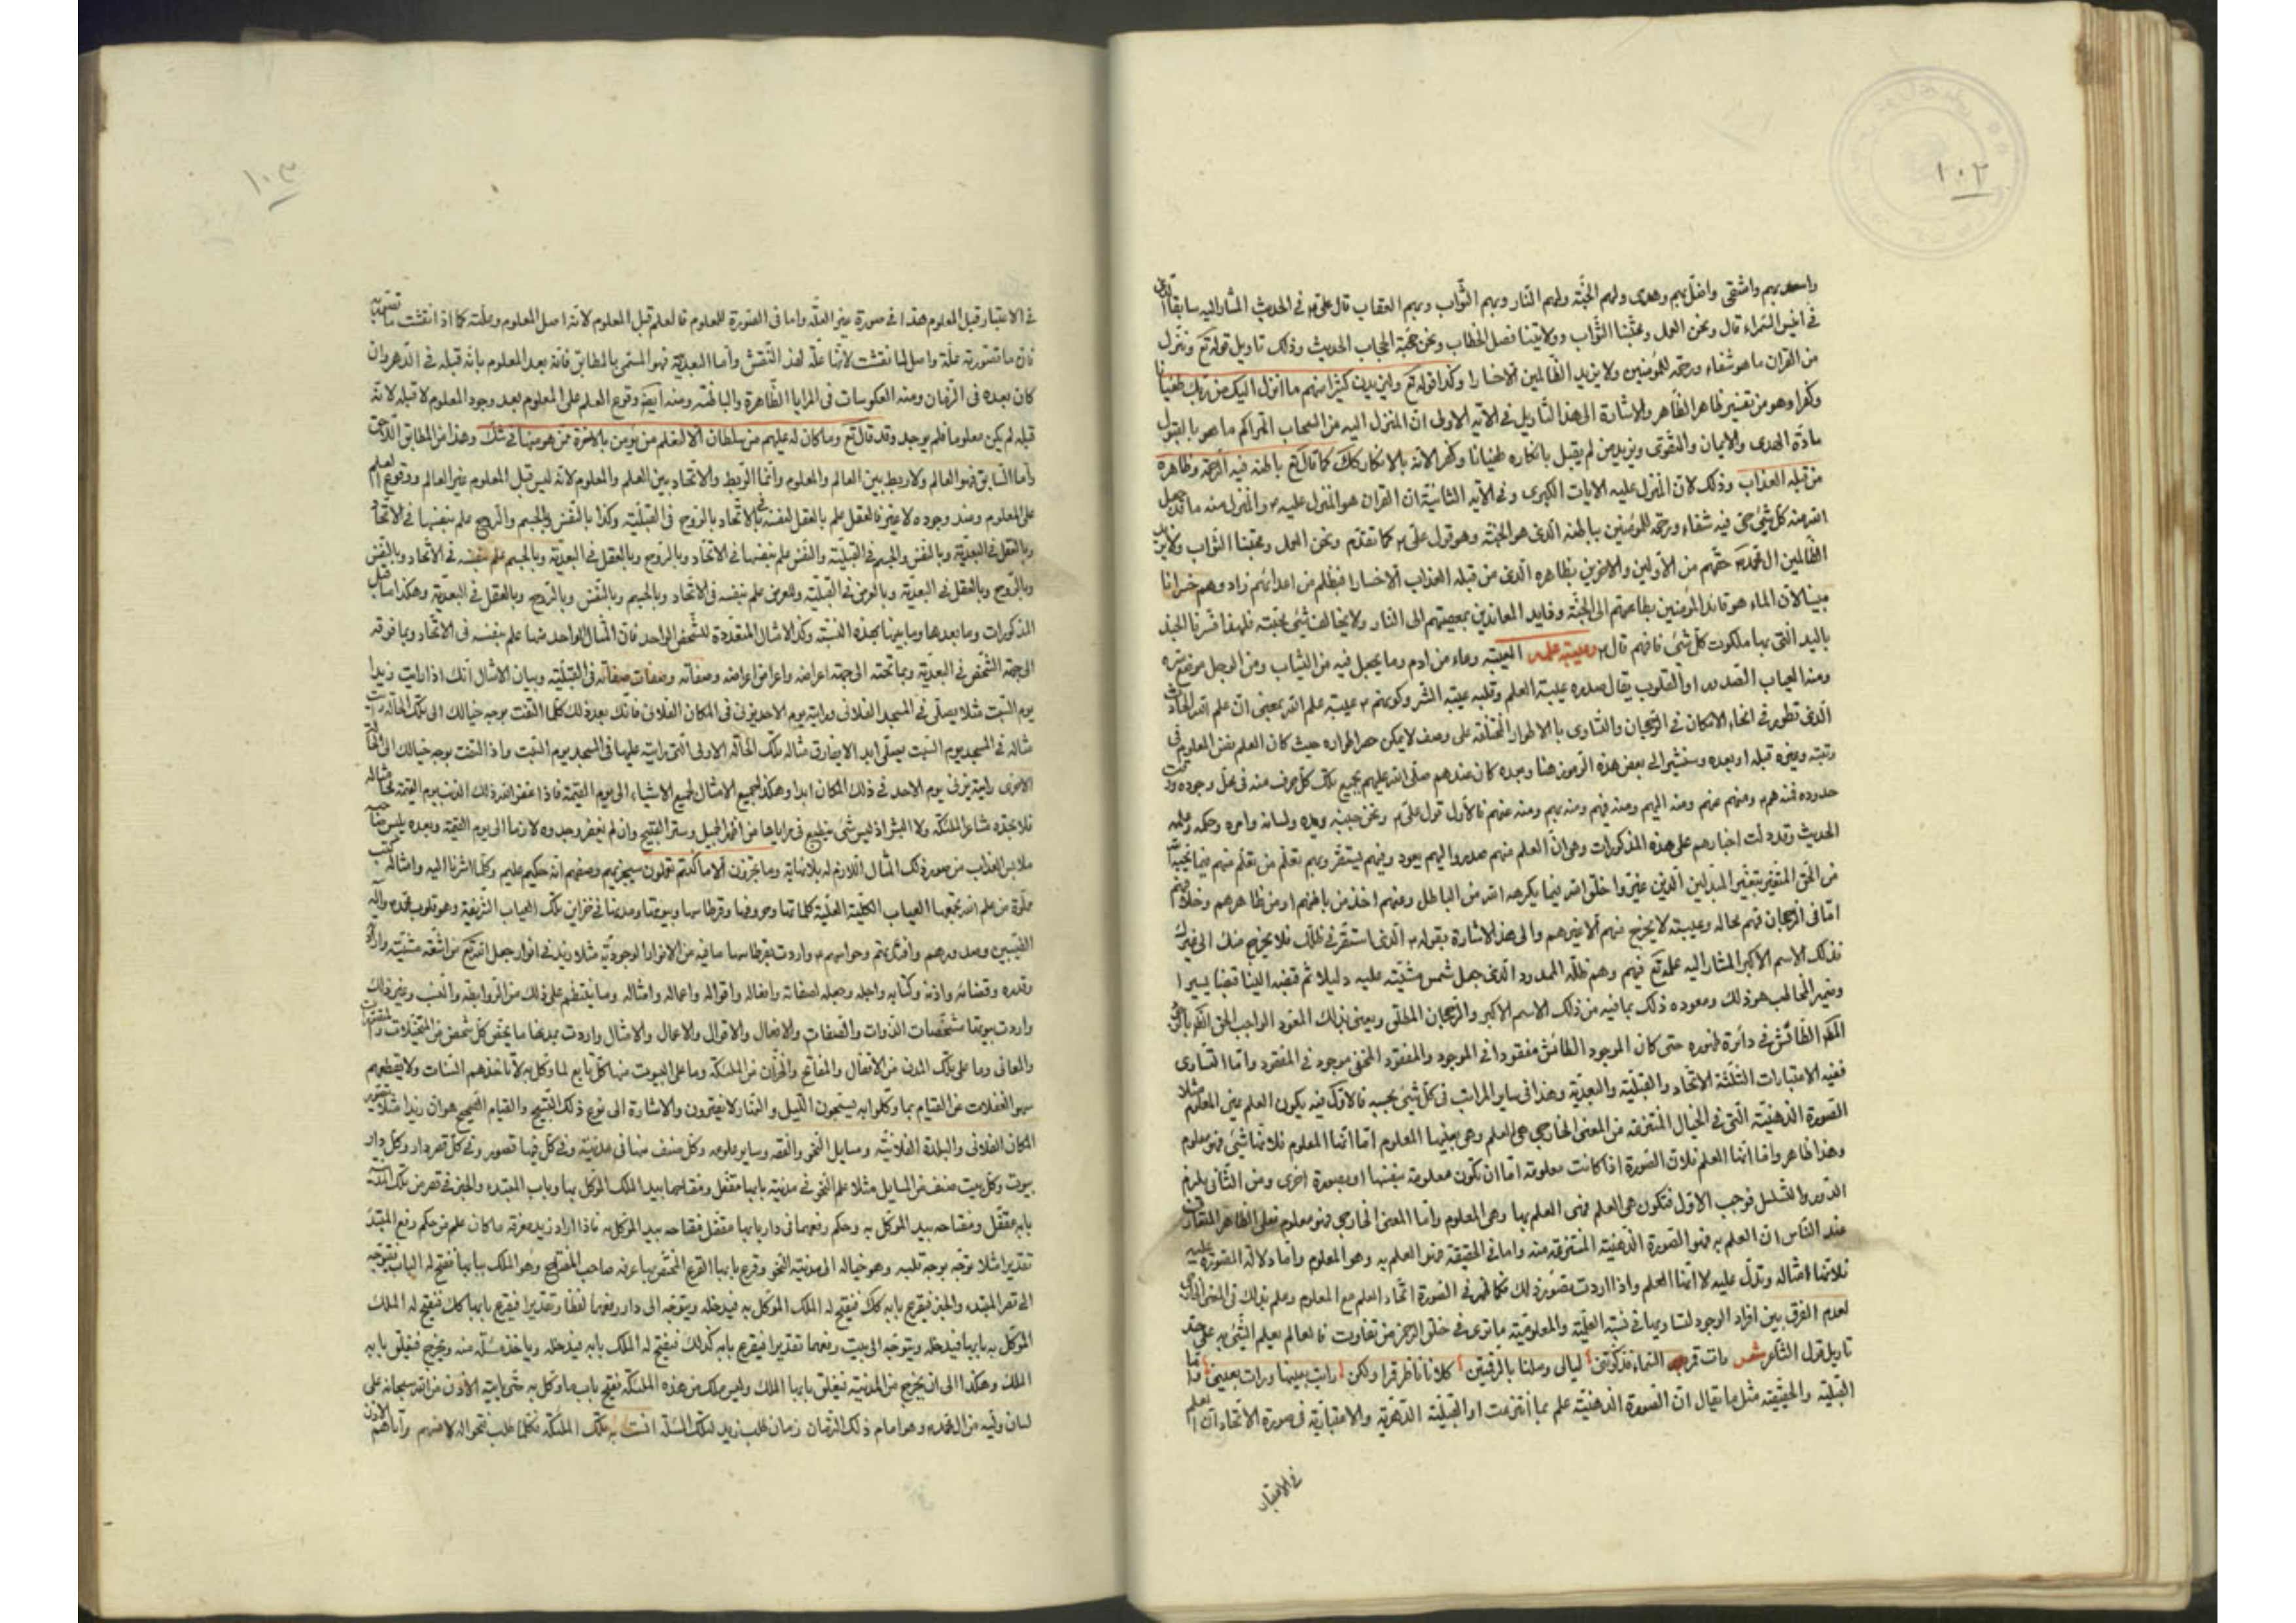 ١٠٢
واسعد بهم واشقى واضل بهم وهدى ولهم الجنة ولهم النار وبهم الثواب وبهم العقاب قال علي ع في الحديث المشار اليه سابقا
قال ونحن العمل ومحبتنا الثواب وولايتنا فصل الخطاب ونحن حجبة الحجاب الحديث وذلك تاويل قوله تع وننزل
من القران ما هو شفاء ورحمة للمؤمنين ولا يزيد الظالمين الا خسارا وكذا قوله تع وليزيدن كثيرا منهم ما انزل اليك من ربك طغيانا
وكفرا وهو من تفسير ظاهر الظاهر والاشارة الى هذا التاويل في الاية الاولى ان المنزل اليه من السحاب المتراكم ما هو
مادة الهدى والايمان والتقوى ويزيد من لم يقبل بانكاره طغيانا وكفرا لانه بالانكار كك كما قال تع باطنه فيه الرحمة وظاهره
من قبله العذاب وذلك لان المنزل عليه الايات الكبرى وفي الاية الثانية ان القران هو المنزل عليه ص والمنزل منه ما قد جعل
الله منه كل شيء حي فيه شفاء ورحمة للمؤمنين باطنه الذي هو الجنة وهو قول علي ع كما تقدم ونحن العمل ومحبتنا الثواب ولا يزيد
الظالمين ال محمد ص حقهم من الاولين والاخرين بظاهره الذي من قبله العذاب الا خسارا فبظلم من اعدائهم زاد وهم خسرانا
مبينا لان الماء هو قائد المؤمنين بطاعتهم الى الجنة وقايد المعاندين بمعصيتهم الى النار ولا يخالف شيء محبته
باليد التي بها ملكوت كل شيء فافهم قال ع وعيبة علمه العيبة وعاء من ادم وما يجعل فيه من الثياب ومن الرجل موضع سره
ومنه العياب الصدور او القلوب يقال صدره عيبة العلم وقلبه عيبة الشر وكونهم ع عيبة علم الله بمعنى ان علم الله الحادث
الذي تطور في انحاء الامكان في الرجحان والتساوى بالاطوار المختلفة على وصف لا يمكن حصر اطواره حيث كان العلم نفس المعلوم في
رتبته وغيره قبله او بعده وسنشير الى بعض هذه الرموز هنا وبعده كان عندهم صلى الله عليهم بجميع تلك كل حرف منه في محل وجوده ووقت
حدوده فمنه هم ومنهم عنهم ومنه اليهم ومنه فيهم ومنه بهم ومنه عنهم فالاول قول علي ع ونحن جنبه ويده ولسانه وامره وحكمه وعلمه
الحديث وقد دلت اخبارهم على هذه المذكورات وهو ان العلم منهم صدر واليهم يعود وفيهم يستقر وبهم تعلم من تعلم منهم
من الحق المتغير بتغيير المبدلين الذين غيروا خلق الله فيما يكرهه الله من الباطل وعنهم اخذ من باطنهم او من ظاهرهم
اما في الرجحان فهم بحاله وعيبته لا يخرج منهم الا غيرهم والى هذا الاشارة بقوله ع الذي استقر في ظلك فلا يخرج منك الى غيرك
فذلك الاسم الاكبر المشار اليه علمه تع فيهم وهم ظله الممدود الذي جعل شمس مشيته عليه دليلا ثم قبضه الينا قبضا يسيرا
وضمير المخاطب هو ذلك ومعوده ذلك بما فيه من ذلك الاسم الاكبر والرجحان المطلق ويعني بذلك المعود الواجب الحق
في دائرة ظهوره حتى كان الموجود الطائش مفقودا في الموجود والمفقود المخفي موجود في المفقود واما التساوى
ففيه الاعتبارات الثلثة الاتحاد والقبلية والبعدية وهذا في ساير المراتب في كل شيء بحسبه فالاول فيه يكون العلم عين المعلوم مثلا
الصورة الذهنية التي في الخيال المنتزعة من المعنى الخارجي هي العلم وهي بعينها المعلوم اما انها المعلوم فلانها شيء فهو معلوم
وهذا ظاهر واما انها العلم فلان الصورة اذا كانت معلومة اما ان تكون معلومة بنفسها او بصورة اخرى ومن الثاني يلزم
الدور والتسلسل فوجب الاول فتكون هي العلم فهي العلم بها وهي المعلوم واما المعنى الخارجي فهو معلوم فعلى الظاهر المتعارف
عند الناس ان العلم به فهو الصورة الذهنية المنتزعة منه واما في الحقيقة فهو العلم به وهو المعلوم واما دلالة الصورة عليه
فلانها مثاله وتدل عليه لا انها العلم واذا اردت تصور ذلك فكما ظهر في الصورة اتحاد العلم مع المعلوم وعلم بذلك في المعنى
لعدم الفرق بين افراد الوجود لتساويها في نسبة العلمية والمعلومية ما ترى في خلق الرحمن من تفاوت فالعالم يعلم الشيء به على حد
تاويل قول الشاعر شعر رات قمر السماء فذكرتني ليالي وصلنا بالرقمتين كلانا ناظر قمرا ولكن رايت بعينها ورات بعيني واما
القبلية والحقيقة مثل ما يقال ان الصورة الذهنية علم بما انتزعت او القبلية الدهرية والاعتبارية في صورة الاتحاد ان العلم
في الاعتبار
١٠٣
في الاعتبار قبل المعلوم هذا في صورة غير العلة واما في الصورة للمعلوم فالعلم قبل المعلوم لانه اصل المعلوم وعلته كما اذا نقشت ما تصورته
فان ما تصورته علة واصل لما نقشت لانها علة لهذا النقش واما البعدية فهو المسمى بالمطابق فانه بعد المعلوم بانه قبله في الدهر وان
كان بعده في الزمان ومنه العكوسات في المرايا الظاهرة والباطنة ومنه ايضا وقوع العلم على المعلوم بعد وجود المعلوم لا قبله لانه
قبله لم يكن معلوما فلم يوجد وقد قال تع وما كان له عليهم من سلطان الا لنعلم من يؤمن بالاخرة ممن هو منها في شك وهذا من المطابق
واما السابق فهو العالم ولا ربط بين العالم والمعلوم وانما الربط والاتحاد بين العلم والمعلوم لانه ليس قبل المعلوم غير العالم ووقوع العلم
على المعلوم وعند وجوده لا غير فالعقل علم بالعقل لنفسه بالاتحاد بالروح في القبلية وكذا بالنفس والجسم والروح علم بنفسها في الاتحاد
وبالعقل في البعدية وبالنفس والجسم في القبلية والنفس علم بنفسها في الاتحاد وبالروح وبالعقل في البعدية وبالجسم علم بنفسه في الاتحاد وبالنفس
وبالروح وبالعقل في البعدية وبالعرض في القبلية والعرض علم بنفسه في الاتحاد وبالجسم وبالنفس وبالروح وبالعقل في البعدية وهكذا ما قبل
المذكورات وما بعدها وما بينها بهذه النسبة وكذا الامثال المتعددة للشخص الواحد فان المثال الواحد منها علم بنفسه في الاتحاد وبما فوقه
الى جهة الشخص في البعدية وبما تحته الى جهة اعراضه واعراض اعراضه وصفاته وصفات صفاته في القبلية وبيان الامثال انك اذا رايت زيدا
يوم السبت مثلا يصلي في المسجد الفلاني ورايته يوم الاحد يزني في المكان الفلاني فانك بعد ذلك كلما التفت بوجه خيالك الى تلك الحالة رايت
مثاله في المسجد يوم السبت يصلي ابدا لا يفارق مثاله تلك الحالة الاولى التي رايته عليها في المسجد يوم السبت واذا التفت بوجه خيالك الى الحالة
الاخرى رايته يزني يوم الاحد في ذلك المكان ابدا وهكذا لجميع الامثال لجميع الاشياء الى يوم القيمة فاذا غفر الله ذلك الذنب يوم القيمة محا مثاله
فلا يجده مشاعر الملئكة ولا البشر اذ ليس شيء ينطبع في مراياها من اظهر الجميل وستر القبيح وان لم يغفر وجدوه لازما الى يوم القيمة وبعده
ملابس العذاب من صور ذلك المثال اللازم له بلا نهاية وما تجزون الا ما كنتم تعملون سيجزيهم وصفهم انه حكيم عليم وكلما اشرنا اليه وامثاله كتب
من علم الله بجمعها العياب الكلية العلية كلماتها وحروفها وقرطاسها وبيوتها ومدنها في خزاين تلك العياب الشريفة وهو قلوب محمد واله
الطيبين وصدورهم وافئدتهم وحواسهم ع واردت بقرطاسها ما فيه من الانوار الوجودية مثلا زيد في انوار جعل الله تع من اشعة مشيته وارادته
وقدره وقضائه واذنه وكتابه واجله وجعله لصفاته وافعاله واقواله واعماله وامثاله وما ينتظم على ذلك من الروابط والنسب وغير ذلك
واردت ببيوتها مشخصات الذوات والصفات والافعال والاقوال والاعمال والامثال واردت بمدنها ما يخص كل شخص من المتخيلات
والمعاني وما على تلك المدن من الاقفال والمفاتح والخزان من الملئكة وما على البيوت منها كل تابع لما وكل به لا تاخذهم السنات ولا يقطعهم
سهو الغفلات عن القيام بما وكلوا به يسبحون الليل والنهار لا يفترون والاشارة الى نوع ذلك التسبيح والقيام الصحيح هو ان زيدا مثلا يتصور
المكان الفلاني والبلدة الفلانية ومسايل النحو والفقه وساير علومه وكل صنف منها في مدينة وفي كل منها قصور وفي كل قصر دار وكل دار
بيوت وكل بيت صنف من المسايل مثلا علم النحو في مدينة بابها مقفل ومفتاحها بيد الملك الموكل بها وباب المبتدء والخبر في قصر من تلك المدينة
بابه مقفل ومفتاحه بيد الموكل به وحكم رفعهما في دار بابها مقفل مفتاحه بيد الموكل به فاذا اراد زيد معرفة ما كان علم من حكم رفع المبتدء
تقديرا مثلا توجه بوجه قلبه وهو خياله الى مدينة النحو وقرع بابها القرع المختص بها عرفه صاحب المفتاح وهو الملك ببابها ففتح له الباب فتوجه
الى قصر المبتدء والخبر فيقرع بابه كك فيفتح له الملك الموكل به فيدخله ويتوجه الى دار رفعهما لفظا وتقديرا فيقرع بابها كك فيفتح له الملك
الموكل به بابها فيدخله ويتوجه الى بيت رفعهما تقديرا فيقرع بابه كذلك فيفتح له الملك بابه فيدخله وياخذ مسئلة منه ويخرج فيغلق بابه
الملك وهكذا الى ان يخرج من المدينة فيغلق بابها الملك وليس ملك من هذه الملئكة يفتح باب ما وكل به حتى ياتيه الاذن من الله سبحانه على
لسان وليه من ال محمد ع وهو امام ذلك الزمان زمان طلب زيد لتلك المسئلة